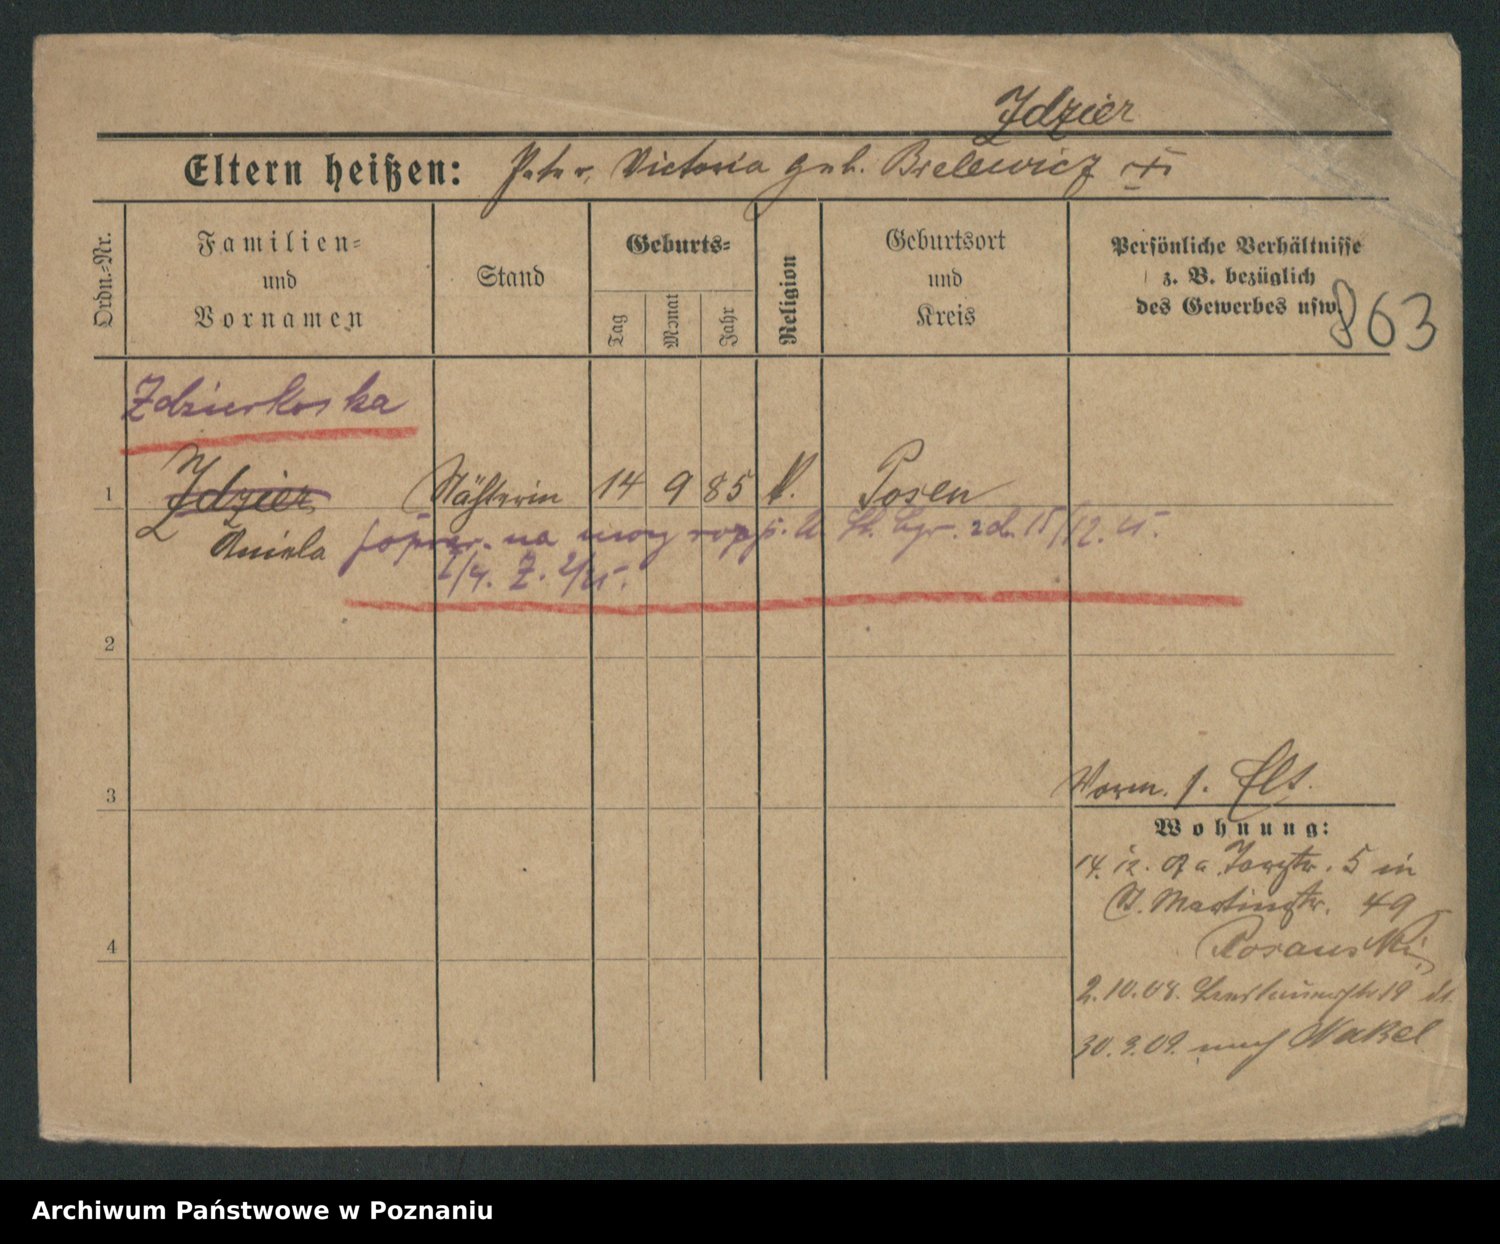 Idzier
Eltern heißen: Peter, Victoria geb. Bielewicz
Ordn.-Nr.
Familien-
und
Vornamen
Stand
Geburts-
Tag
Monat
Jahr
Religion
Geburtsort
und
Kreis
Persönliche Verhältnisse
z. B. bezüglich
des Gewerbes usw.
863
Zdzierkoska
1 Idzier Nähterin 14 9 85 k. Posen
Aniela na mocy rozp. St. Cyw. 15/12. 25.
2
3
4
Vorm. s. Elt.
Wohnung:
14. 12. 07 a 5 in
St. Martinstr. 49
2.10.08. 19
30.3.09. nach Nakel
Archiwum Państwowe w Poznaniu